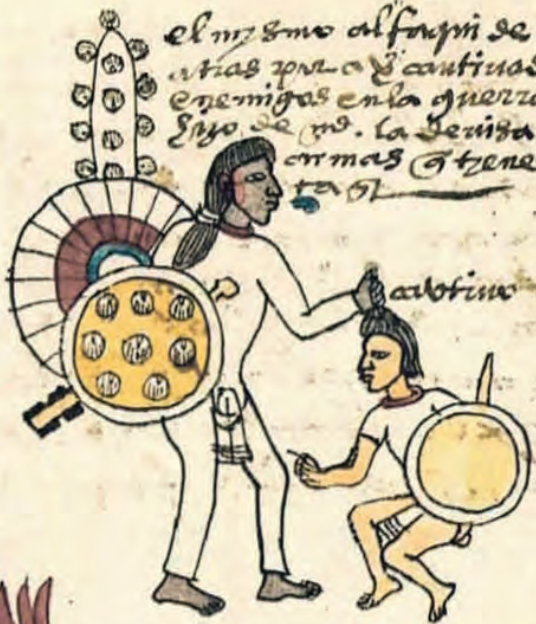 el mysmo alfaqui de
atras para q cautivas
enemigos en la guerra
hizo de md. la devisa
armas q tiene
ta
cautivo